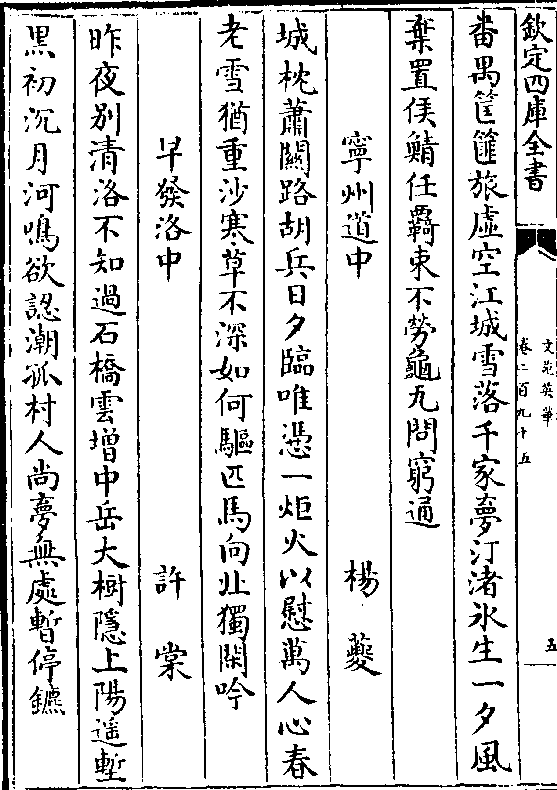 欽定四庫全書
文苑英華
卷二百九十五
五
畨禺筐篚旅虛空江城雪落千家夢汀渚氷生一夕風
棄置侯鯖任羈束不勞龜九問窮通
寧州道中 楊夔
城枕蕭關路胡兵日夕臨唯憑一炬火以慰萬人心春
老雪猶重沙寒草不深如何驅匹馬向北獨閑吟
早發洛中 許棠
昨夜别清洛不知過石橋雲增中岳大樹隱上陽遥塹
黒初沉月河鳴欲認潮孤村人尚夢無處暫停鑣